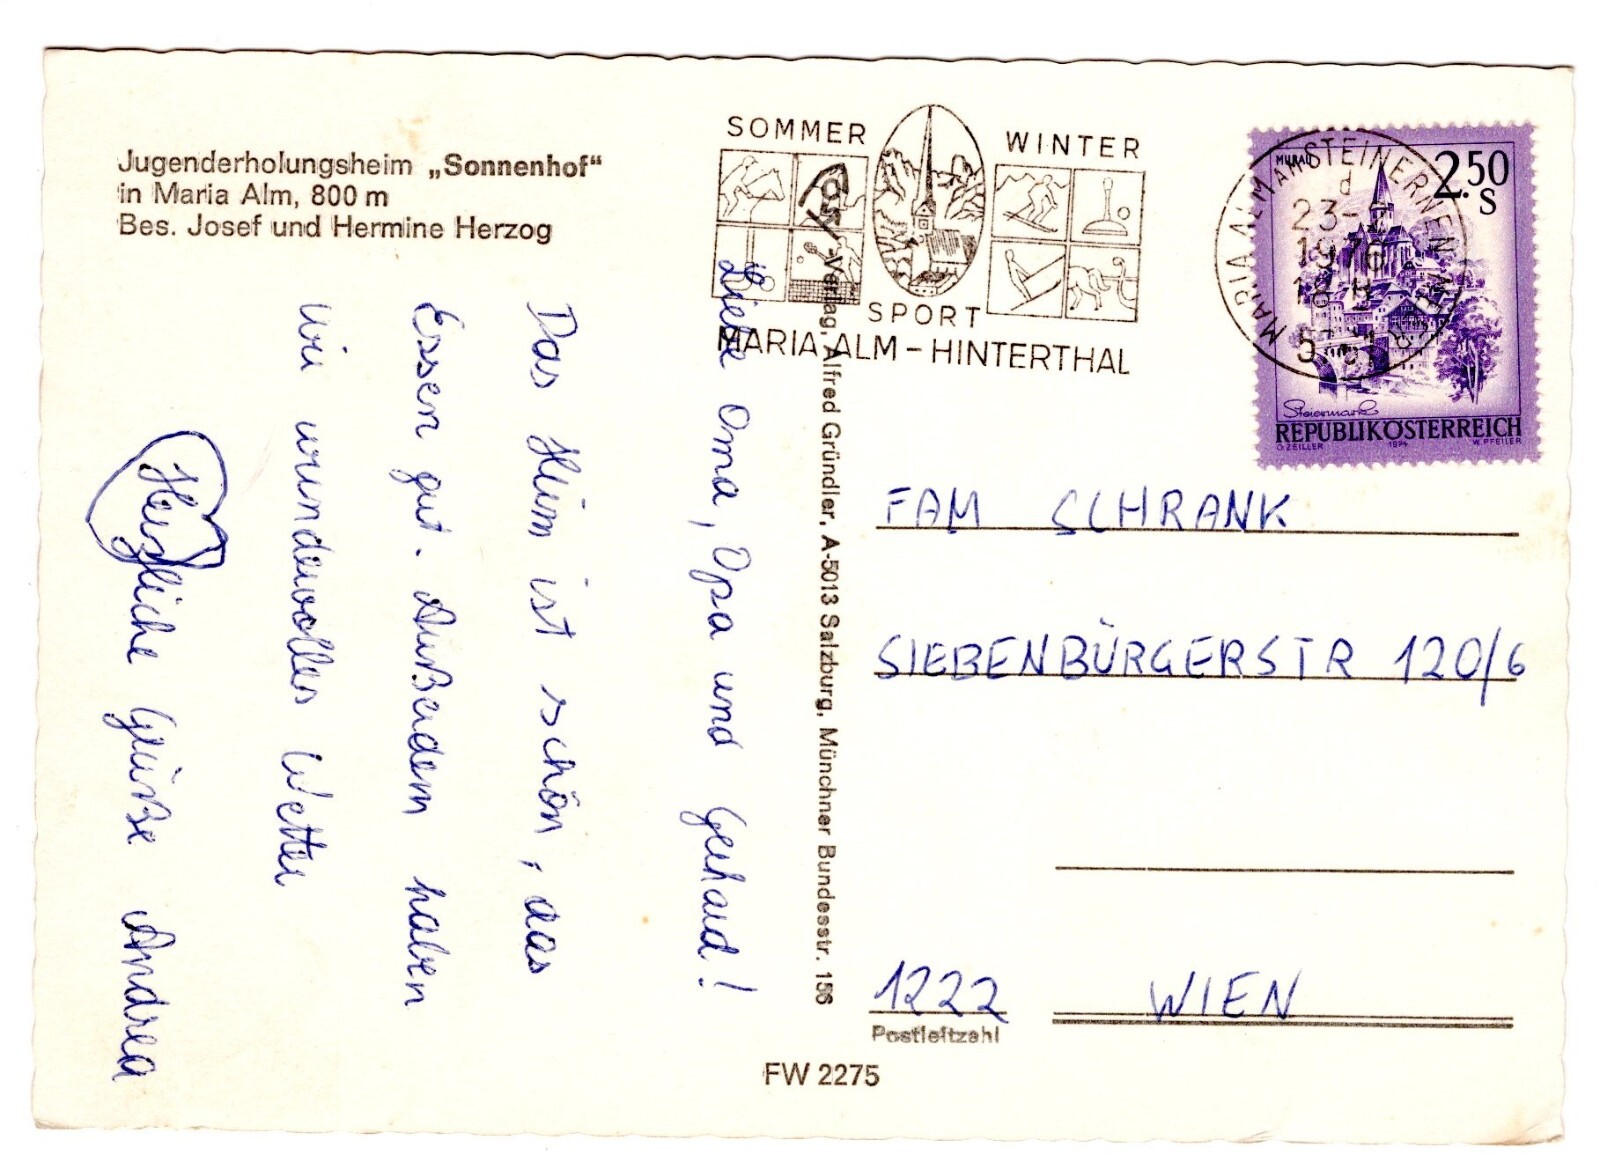 Jugenderholungsheim „Sonnenhof“
in Maria Alm, 800 m
Bes. Josef und Hermine Herzog
SOMMER
WINTER
SPORT
MARIA ALM – HINTERTHAL
MARIA ALM AM STEINERNEN MEER
d
23-
1976
MURAU
2.50
S
Steiermark
REPUBLIK ÖSTERREICH
O. ZEILLER
1974
W. PFEILER
Liebe Oma, Opa und Gerhard!
Das Heim ist schön, das
Essen gut. Außerdem haben
wir wundervolles Wetter
Herzliche Grüße Andrea
Verlag Alfred Gründler, A-5013 Salzburg, Münchner Bundesstr. 156
FAM SCHRANK
SIEBENBÜRGERSTR 120/6
1222 WIEN
Postleitzahl
FW 2275